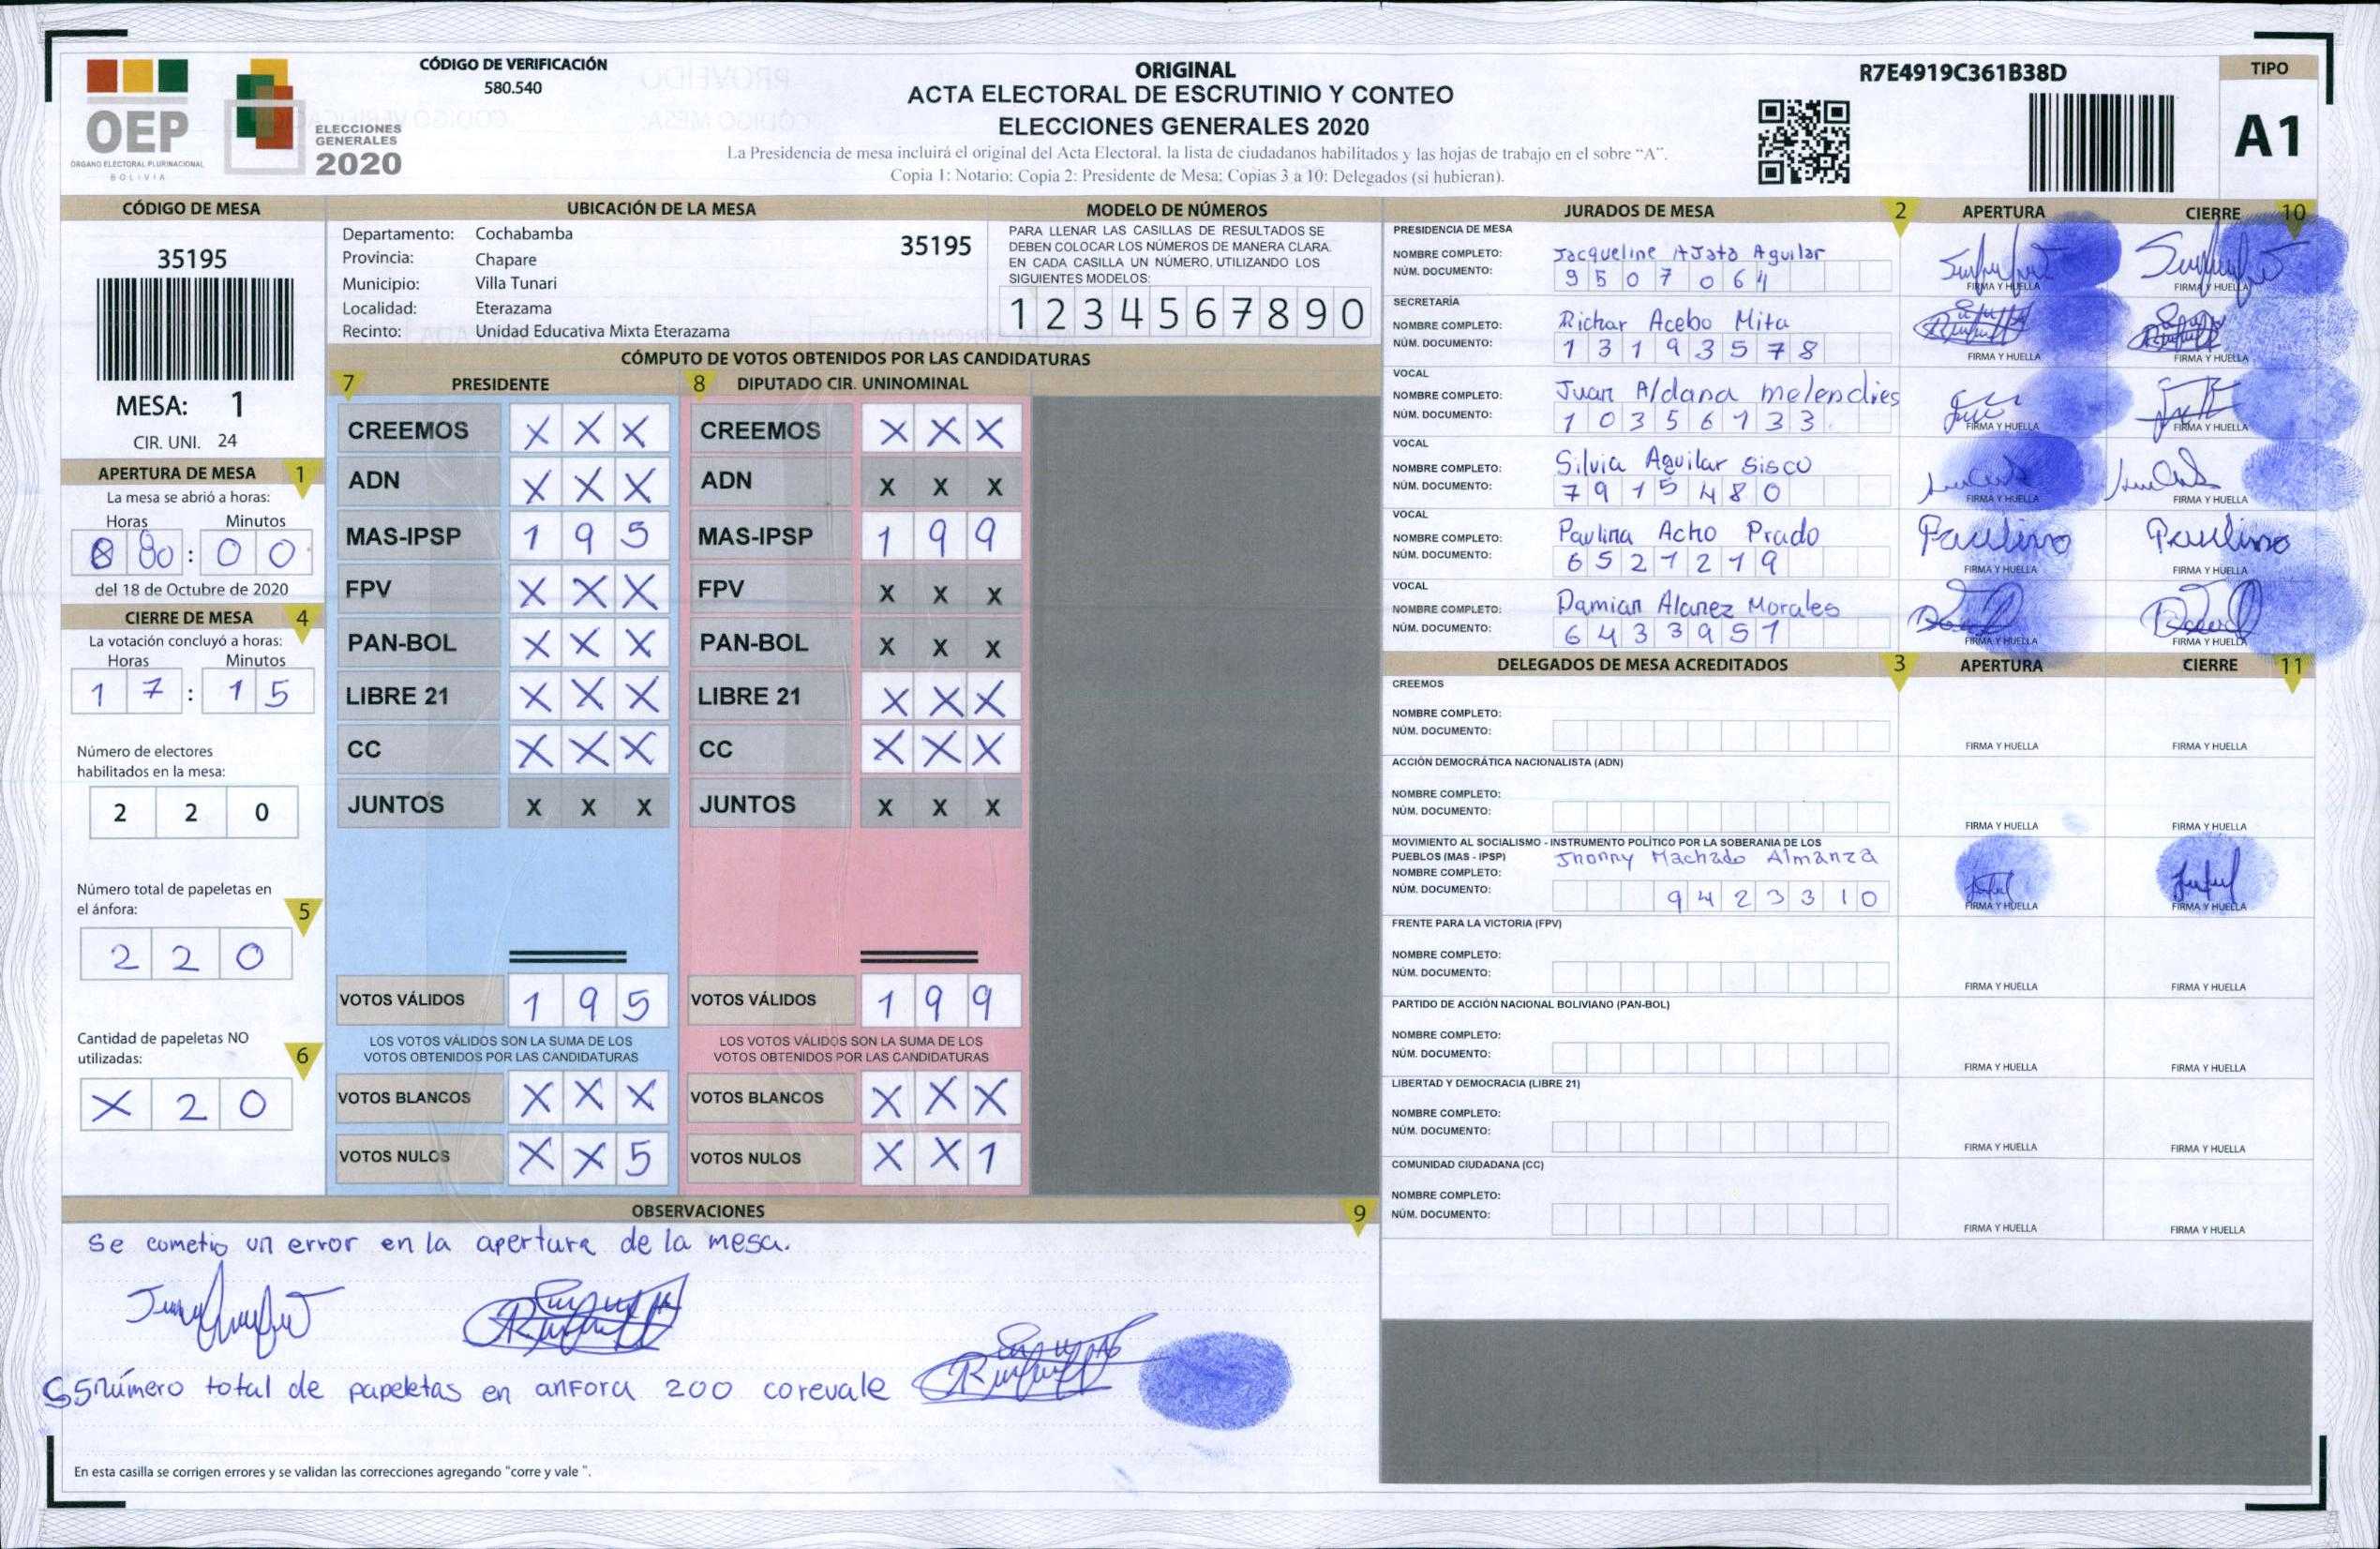 OEP
ÓRGANO ELECTORAL PLURINACIONAL
BOLIVIA
ELECCIONES
GENERALES
2020
CÓDIGO DE VERIFICACIÓN
580.540
ORIGINAL
ACTA ELECTORAL DE ESCRUTINIO Y CONTEO
ELECCIONES GENERALES 2020
La Presidencia de mesa incluirá el original del Acta Electoral, la lista de ciudadanos habilitados y las hojas de trabajo en el sobre "A".
Copia 1: Notario; Copia 2: Presidente de Mesa; Copias 3 a 10: Delegados (si hubieran).
R7E4919C361B38D
TIPO
A1
CÓDIGO DE MESA
35195
MESA: 1
CIR. UNI. 24
UBICACIÓN DE LA MESA
Departamento: Cochabamba
Provincia: Chapare
Municipio: Villa Tunari
Localidad: Eterazama
Recinto: Unidad Educativa Mixta Eterazama
35195
MODELO DE NÚMEROS
PARA LLENAR LAS CASILLAS DE RESULTADOS SE
DEBEN COLOCAR LOS NÚMEROS DE MANERA CLARA.
EN CADA CASILLA UN NÚMERO, UTILIZANDO LOS
SIGUIENTES MODELOS:
1 2 3 4 5 6 7 8 9 0
APERTURA DE MESA 1
La mesa se abrió a horas:
Horas Minutos
: 0 0
del 18 de Octubre de 2020
CIERRE DE MESA 4
La votación concluyó a horas:
Horas Minutos
1 7 : 1 5
Número de electores
habilitados en la mesa:
2 2 0
Número total de papeletas en
el ánfora: 5
2 2 0
Cantidad de papeletas NO
utilizadas: 6
X 2 0
CÓMPUTO DE VOTOS OBTENIDOS POR LAS CANDIDATURAS
7 PRESIDENTE
CREEMOS X X X
ADN X X X
MAS-IPSP 1 9 5
FPV X X X
PAN-BOL X X X
LIBRE 21 X X X
CC X X X
JUNTOS X X X
VOTOS VÁLIDOS 1 9 5
LOS VOTOS VÁLIDOS SON LA SUMA DE LOS
VOTOS OBTENIDOS POR LAS CANDIDATURAS
VOTOS BLANCOS X X X
VOTOS NULOS X X 5
8 DIPUTADO CIR. UNINOMINAL
CREEMOS X X X
ADN X X X
MAS-IPSP 1 9 9
FPV X X X
PAN-BOL X X X
LIBRE 21 X X X
CC X X X
JUNTOS X X X
VOTOS VÁLIDOS 1 9 9
LOS VOTOS VÁLIDOS SON LA SUMA DE LOS
VOTOS OBTENIDOS POR LAS CANDIDATURAS
VOTOS BLANCOS X X X
VOTOS NULOS X X 1
OBSERVACIONES 9
Se cometio un error en la apertura de la mesa.
número total de papeletas en anfora 200 corevale
En esta casilla se corrigen errores y se validan las correcciones agregando "corre y vale ".
JURADOS DE MESA 2 APERTURA CIERRE 10
PRESIDENCIA DE MESA
NOMBRE COMPLETO: Jacqueline AJata Aguilar
NÚM. DOCUMENTO: 9 5 0 7 0 6 4
FIRMA Y HUELLA FIRMA Y HUELLA
SECRETARÍA
NOMBRE COMPLETO: Richar Acebo Mita
NÚM. DOCUMENTO: 1 3 1 9 3 5 7 8
FIRMA Y HUELLA FIRMA Y HUELLA
VOCAL
NOMBRE COMPLETO: Juan Aldana melendres
NÚM. DOCUMENTO: 1 0 3 5 6 1 3 3
FIRMA Y HUELLA FIRMA Y HUELLA
VOCAL
NOMBRE COMPLETO: Silvia Aguilar Sisco
NÚM. DOCUMENTO: 7 9 1 5 4 8 0
FIRMA Y HUELLA FIRMA Y HUELLA
VOCAL
NOMBRE COMPLETO: Paulina Acho Prado
NÚM. DOCUMENTO: 6 5 2 1 2 1 9
Paulina Paulina
FIRMA Y HUELLA FIRMA Y HUELLA
VOCAL
NOMBRE COMPLETO: Damian Alanez Morales
NÚM. DOCUMENTO: 6 4 3 3 9 5 1
FIRMA Y HUELLA FIRMA Y HUELLA
DELEGADOS DE MESA ACREDITADOS 3 APERTURA CIERRE 11
CREEMOS
NOMBRE COMPLETO:
NÚM. DOCUMENTO:
FIRMA Y HUELLA FIRMA Y HUELLA
ACCIÓN DEMOCRÁTICA NACIONALISTA (ADN)
NOMBRE COMPLETO:
NÚM. DOCUMENTO:
FIRMA Y HUELLA FIRMA Y HUELLA
MOVIMIENTO AL SOCIALISMO - INSTRUMENTO POLÍTICO POR LA SOBERANIA DE LOS
PUEBLOS (MAS - IPSP) Jhonny Machado Almanza
NOMBRE COMPLETO:
NÚM. DOCUMENTO: 9 4 2 3 3 1 0
FIRMA Y HUELLA FIRMA Y HUELLA
FRENTE PARA LA VICTORIA (FPV)
NOMBRE COMPLETO:
NÚM. DOCUMENTO:
FIRMA Y HUELLA FIRMA Y HUELLA
PARTIDO DE ACCIÓN NACIONAL BOLIVIANO (PAN-BOL)
NOMBRE COMPLETO:
NÚM. DOCUMENTO:
FIRMA Y HUELLA FIRMA Y HUELLA
LIBERTAD Y DEMOCRACIA (LIBRE 21)
NOMBRE COMPLETO:
NÚM. DOCUMENTO:
FIRMA Y HUELLA FIRMA Y HUELLA
COMUNIDAD CIUDADANA (CC)
NOMBRE COMPLETO:
NÚM. DOCUMENTO:
FIRMA Y HUELLA FIRMA Y HUELLA